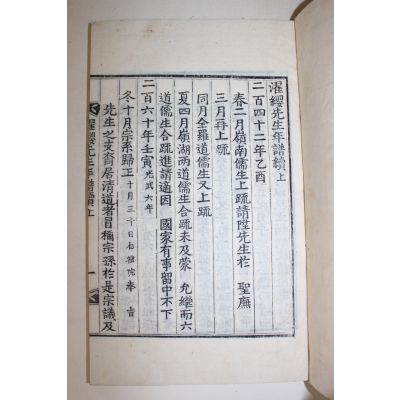 濯纓先生年譜續上
二百四十二年乙酉
春二月嶺南儒生上疏請陞先生於 聖廡
三月再上疏
同月全羅道儒生又上疏
夏四月嶺湖兩道儒生合疏未及蒙 允繼而六
道儒生合疏進請適因 國家有事留中不下
二百六十年壬寅光武六年
冬十月宗系歸正十月三十日
先生之支裔居清道者冒稱宗孫於是宗議及
濯纓先生年譜續上
一